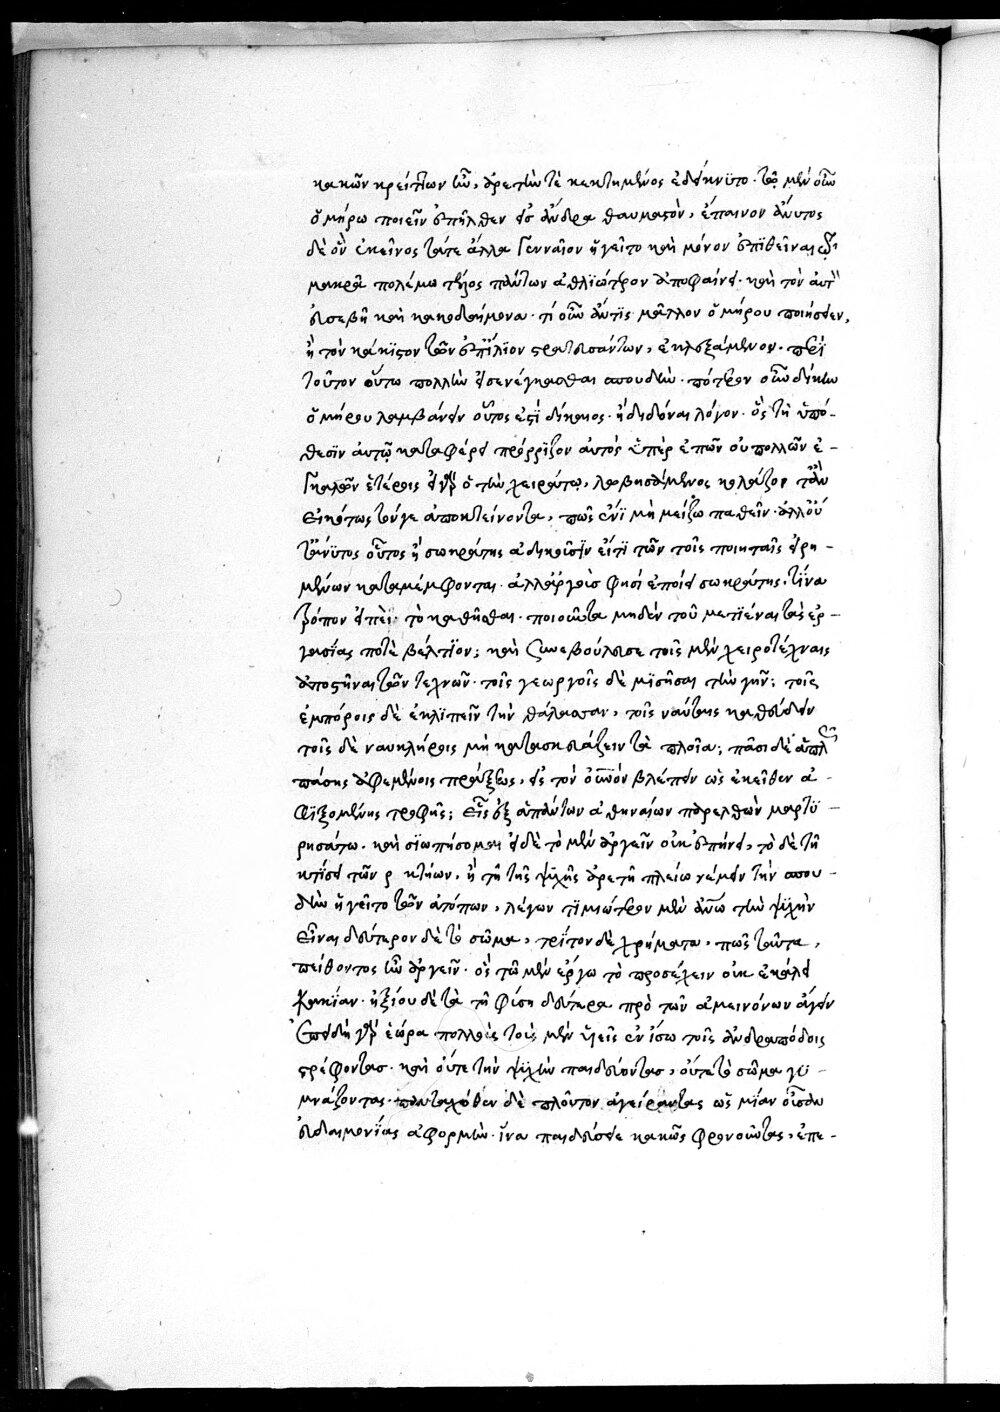 κακῶν κρείττων ὢν, ἀρετὴν τὲ κεκτημένος ἐδείκνυτο. τῶ μὲν οὖν
ὁμήρω ποιεῖν ἐπῆλθεν εἰς ἄνδρα θαυμαστὸν, ἔπαινον ἄνυτος
δὲ ὃν ἐκεῖνος τάτε ἄλλα γενναῖον ἡγεῖτο καὶ μόνον ἐπιθεῖναι
μακρῶ πολέμω τέλος πάντων ἀθλιώτερον ἀποφαίνει. καὶ τὸν
δυσσεβῆ καὶ κακοδαίμονα. τί οὖν ἄν τις μᾶλλον ὁμήρου ποιήσειεν,
ἢ τὸν κάκιστον τῶν ἐπ' ἴλιον στρατευσάντων, ἐκλεξάμενον. περὶ
τοῦτον οὕτω πολλὴν εἰσενέγκασθαι σπουδὴν. πότερον οὖν δίκην
ὁμήρου λαμβάνειν οὗτος ἐστὶ δίκαιος. ἢ διδόναι λόγον. ὃς τὴ ὑπό-
θεσιν αὐτῶ καταφέρει πρόρριζον αὐτὸς ὑπὲρ ἐπῶν οὐ πολλῶν ἐ-
γκαλῶν ἑτέροις εἰ γὰρ ὁ τὴν χεῖρα, λωβησάμενος κολάζοιτ' ἂν
εἰκότως τόνγε ἀποκτείνοντα, πῶς ἔνι μὴ μείζω παθεῖν. ἀλλ' οὐ
ἄνυτος οὗτος ἢ σωκράτης ἀδικοῦσιν εἴ τι τῶν τοῖς ποιηταῖς εἰρη-
μένων καταμέμφονται. ἀλλ' ἀργοὺς φησὶ ἐποίει σωκράτης. τίνα
τρόπον εἰπέ. τὸ καθῆσθαι. ποιοῦντα μηδὲν τοῦ μετιέναι τὰς ἐρ-
γασίας ποτὲ βέλτιον; καὶ συνεβούλευσε τοῖς μὲν χειροτέχναις
ἀποστῆναι τῶν τεχνῶν. τοῖς γεωργοῖς δὲ μισῆσαι τὴν γῆν; τοῖς
ἐμπόροις δὲ ἐκλιπεῖν τὴν θάλασσαν, τοῖς ναύταις καθεύδειν
τοῖς δὲ ναυκλήροις μὴ κατασκευάζειν τὰ πλοῖα; πᾶσι δὲ ἁπλῶς
πάσης ἀφεμένοις πράξεως, εἰς τὸν οὐρανὸν βλέπειν ὡς ἐκεῖθεν ἀ-
φιξομένης τροφῆς; εἷς ἐξ ἁπάντων ἀθηναίων παρελθὼν μαρτυ-
ρησάτω. καὶ σιωπήσομαι εἰ δὲ τὸ μὲν ἀργεῖν οὐκ ἐπήνει, τὸ δὲ τῆ
κτίσει τῶν κτήων, ἢ τῆ τῆς ψυχῆς ἀρετῆ πλείω νέμειν τὴν σπου-
δὴν ἡγεῖτο τῶν ἀτόπων, λέγων τιμιώτερον μὲν ἄνω τὴν ψυχὴν
εἶναι δεύτερον δὲ τὸ σῶμα, τρίτον δὲ χρήματα, πῶς ταῦτα,
πείθοντος ἦν ἀργεῖν. ὃς τῶ μὲν ἔργω τὸ προσέχειν οὐκ ἐκάλει
κακίαν. ἠξίου δὲ τὰ τῆ φύσει δεύτερα πρὸ τῶν ἀμεινόνων ἄγειν
ἐπειδὴ γὰρ ἑώρα πολλοὺς τοὺς μὲν υἱεῖς ἐν ἴσω τοῖς ἀνδραπόδοις
τρέφοντας. καὶ οὔτε τὴν ψυχὴν παιδεύοντας, οὔτε τὸ σῶμα γυ-
μνάζοντας. πανταχόθεν δὲ πλοῦτον ἀγείροντας ὡς μίαν οὖσαν
εὐδαιμονίας ἀφορμὴν. ἵνα παιδεύσειε κακῶς φρονοῦντας, ἐπε-